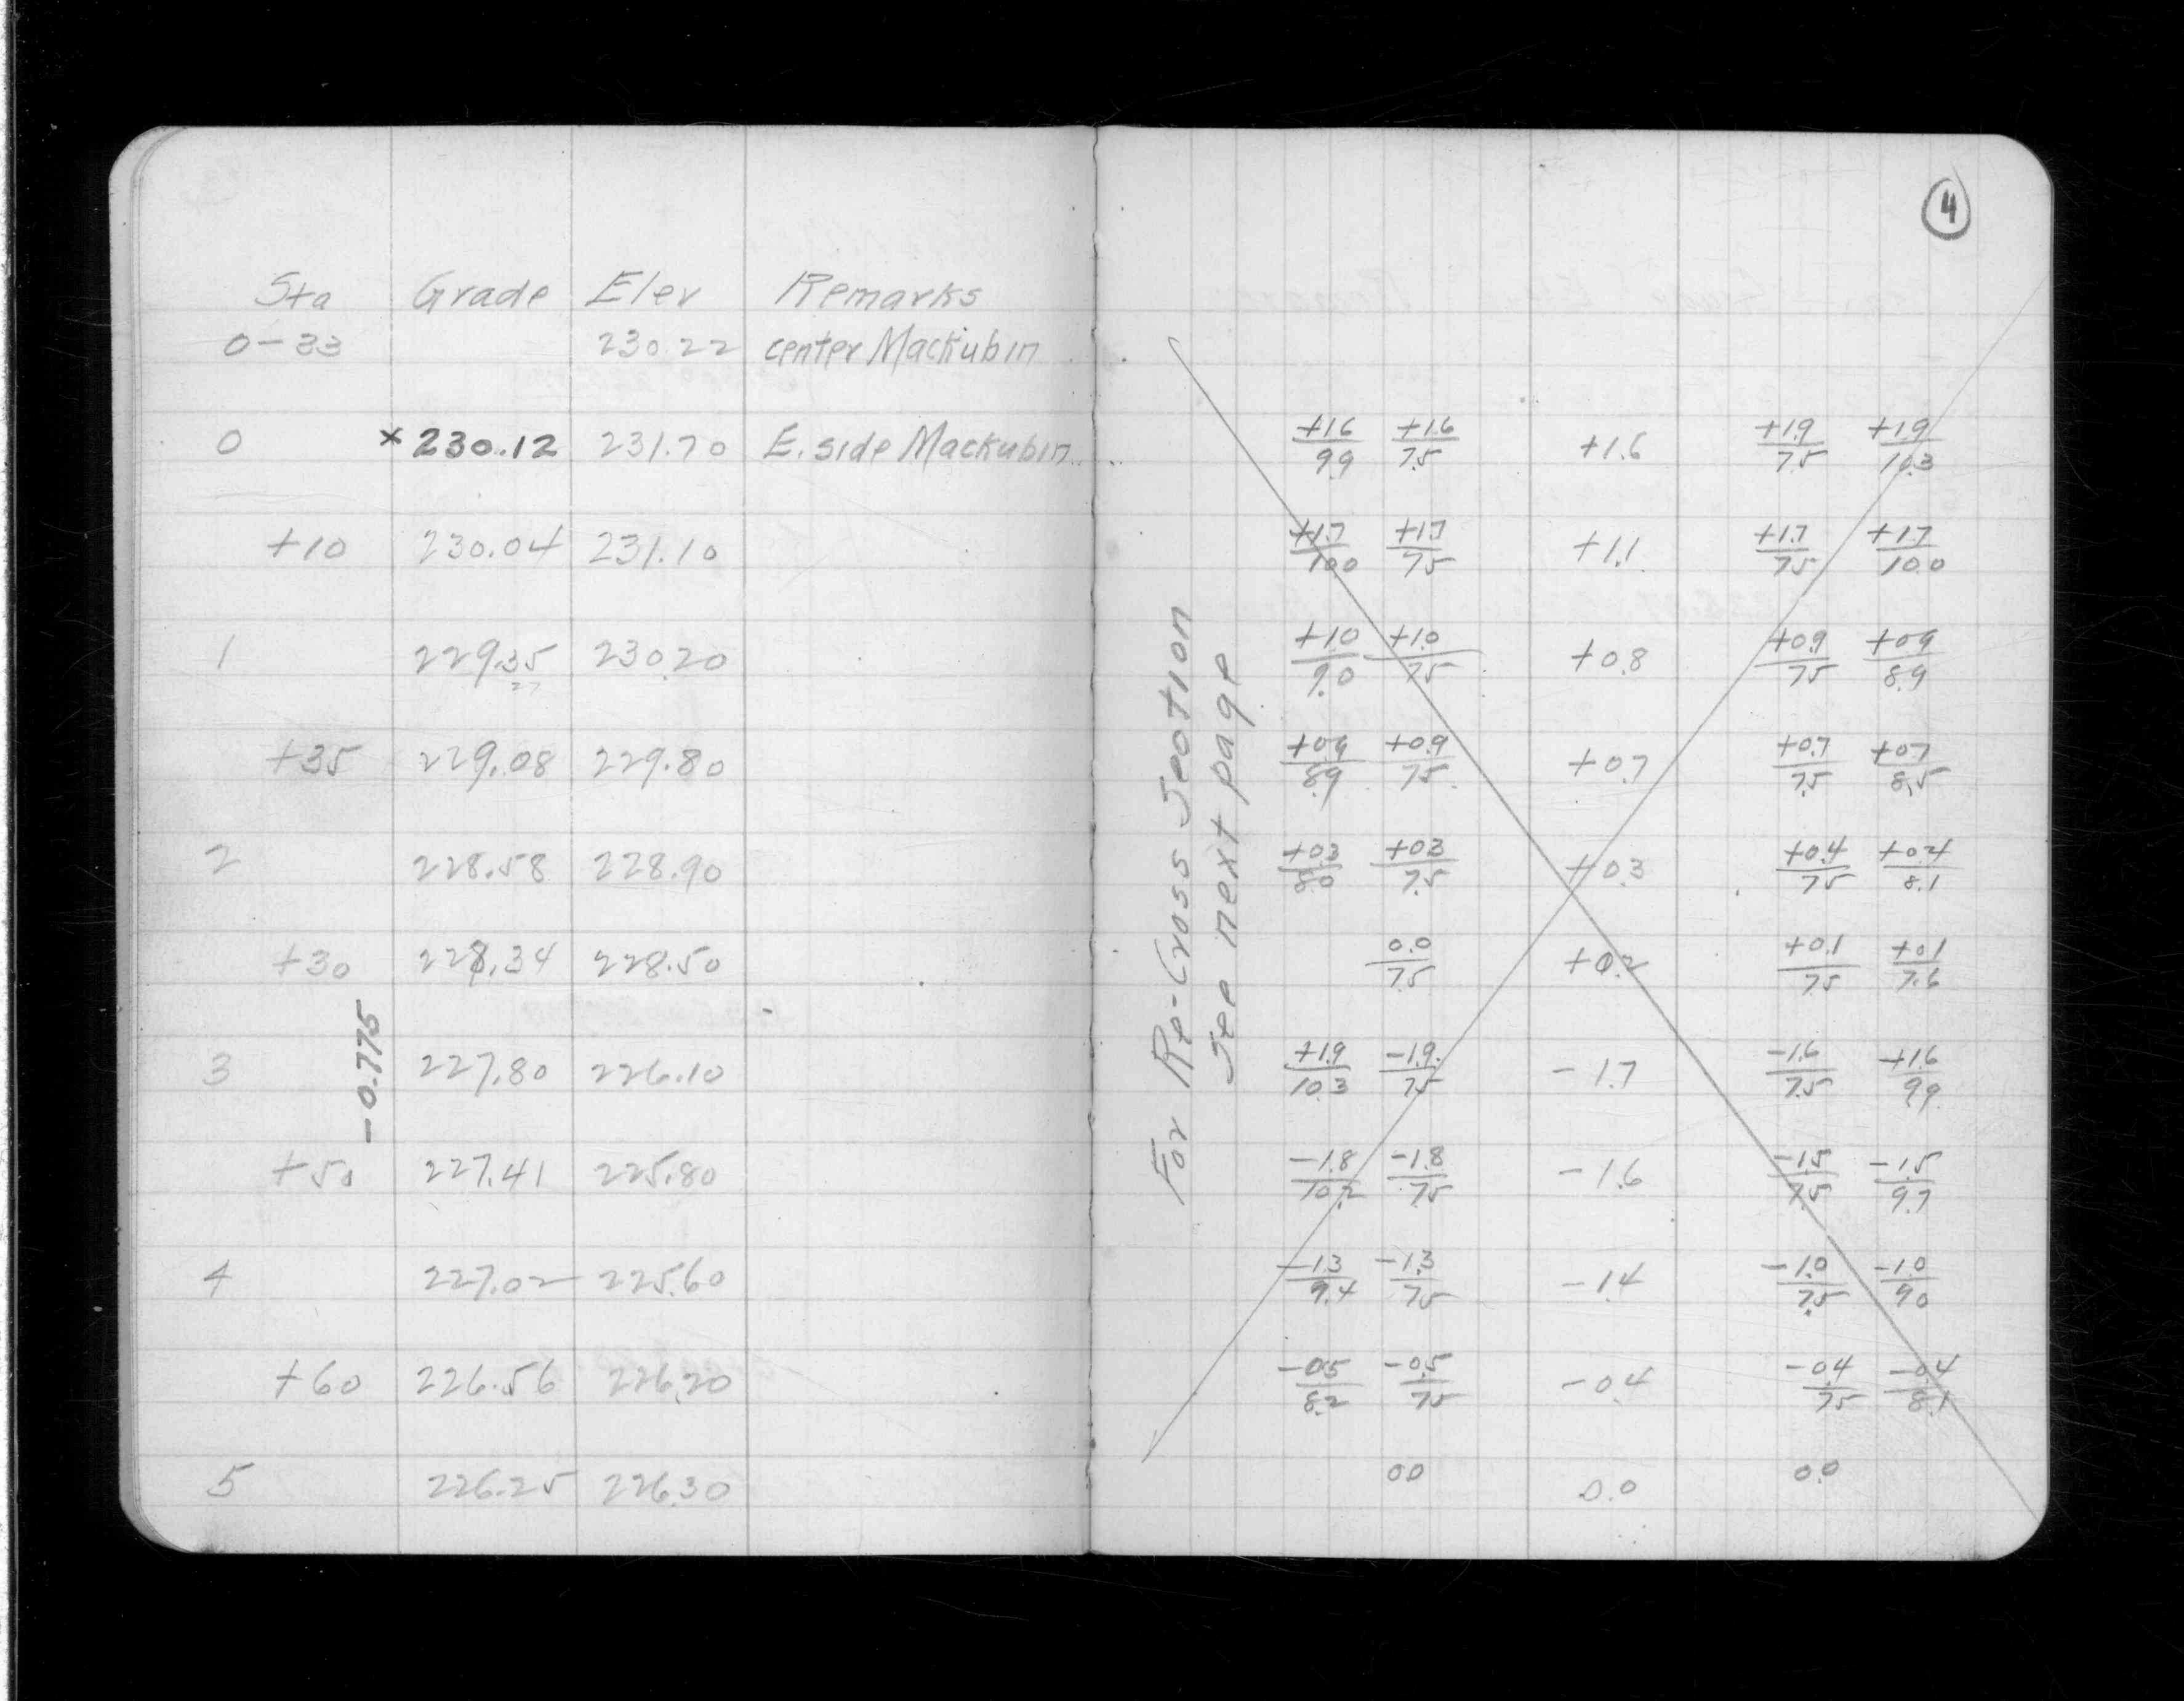 4
Sta Grade Elev Remarks
0-33 230.22 center Mackubin
0 × 230.12 231.70 E. side Mackubin
+10 230.04 231.10
1 229.35 230.20
27
+35 229.08 229.80
2 228.58 228.90
+30 228.34 228.50
3 227.80 226.10
-0.775
+50 227.41 225.80
4 227.02 225.60
+60 226.56 226.20
5 226.25 226.30
For Re-Cross Section
See next page
+1.6 +1.6 +1.6 +1.9 +1.9
9.9 7.5 7.5 10.3
+1.7 +1.7 +1.1 +1.7 +1.7
10.0 7.5 7.5 10.0
+1.0 +1.0 +0.8 +0.9 +0.9
9.0 7.5 7.5 8.9
+0.9 +0.9 +0.7 +0.7 +0.7
8.9 7.5 7.5 8.5
+0.3 +0.3 +0.3 +0.4 +0.4
8.0 7.5 7.5 8.1
0.0 +0.2 +0.1 +0.1
7.5 7.5 7.6
+1.9 -1.9 -1.7 -1.6 +1.6
10.3 7.5 7.5 9.9
-1.8 -1.8 -1.6 -1.5 -1.5
10.2 7.5 7.5 9.7
-1.3 -1.3 -1.4 -1.0 -1.0
9.4 7.5 7.5 9.0
-0.5 -0.5 -0.4 -0.4 -0.4
8.2 7.5 7.5 8.1
0.0 0.0 0.0